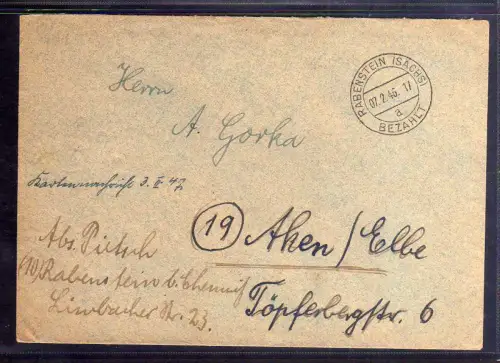 RABENSTEIN (SACHS)
07.2.46. 17
a
BEZAHLT
Herrn
A. Gorka
Kartennachricht 3. II 47.
(19) Aken/Elbe
Töpferbergstr. 6
Abs. Pietsch
(10) Rabenstein b. Chemnitz
Limbacher Str. 23.